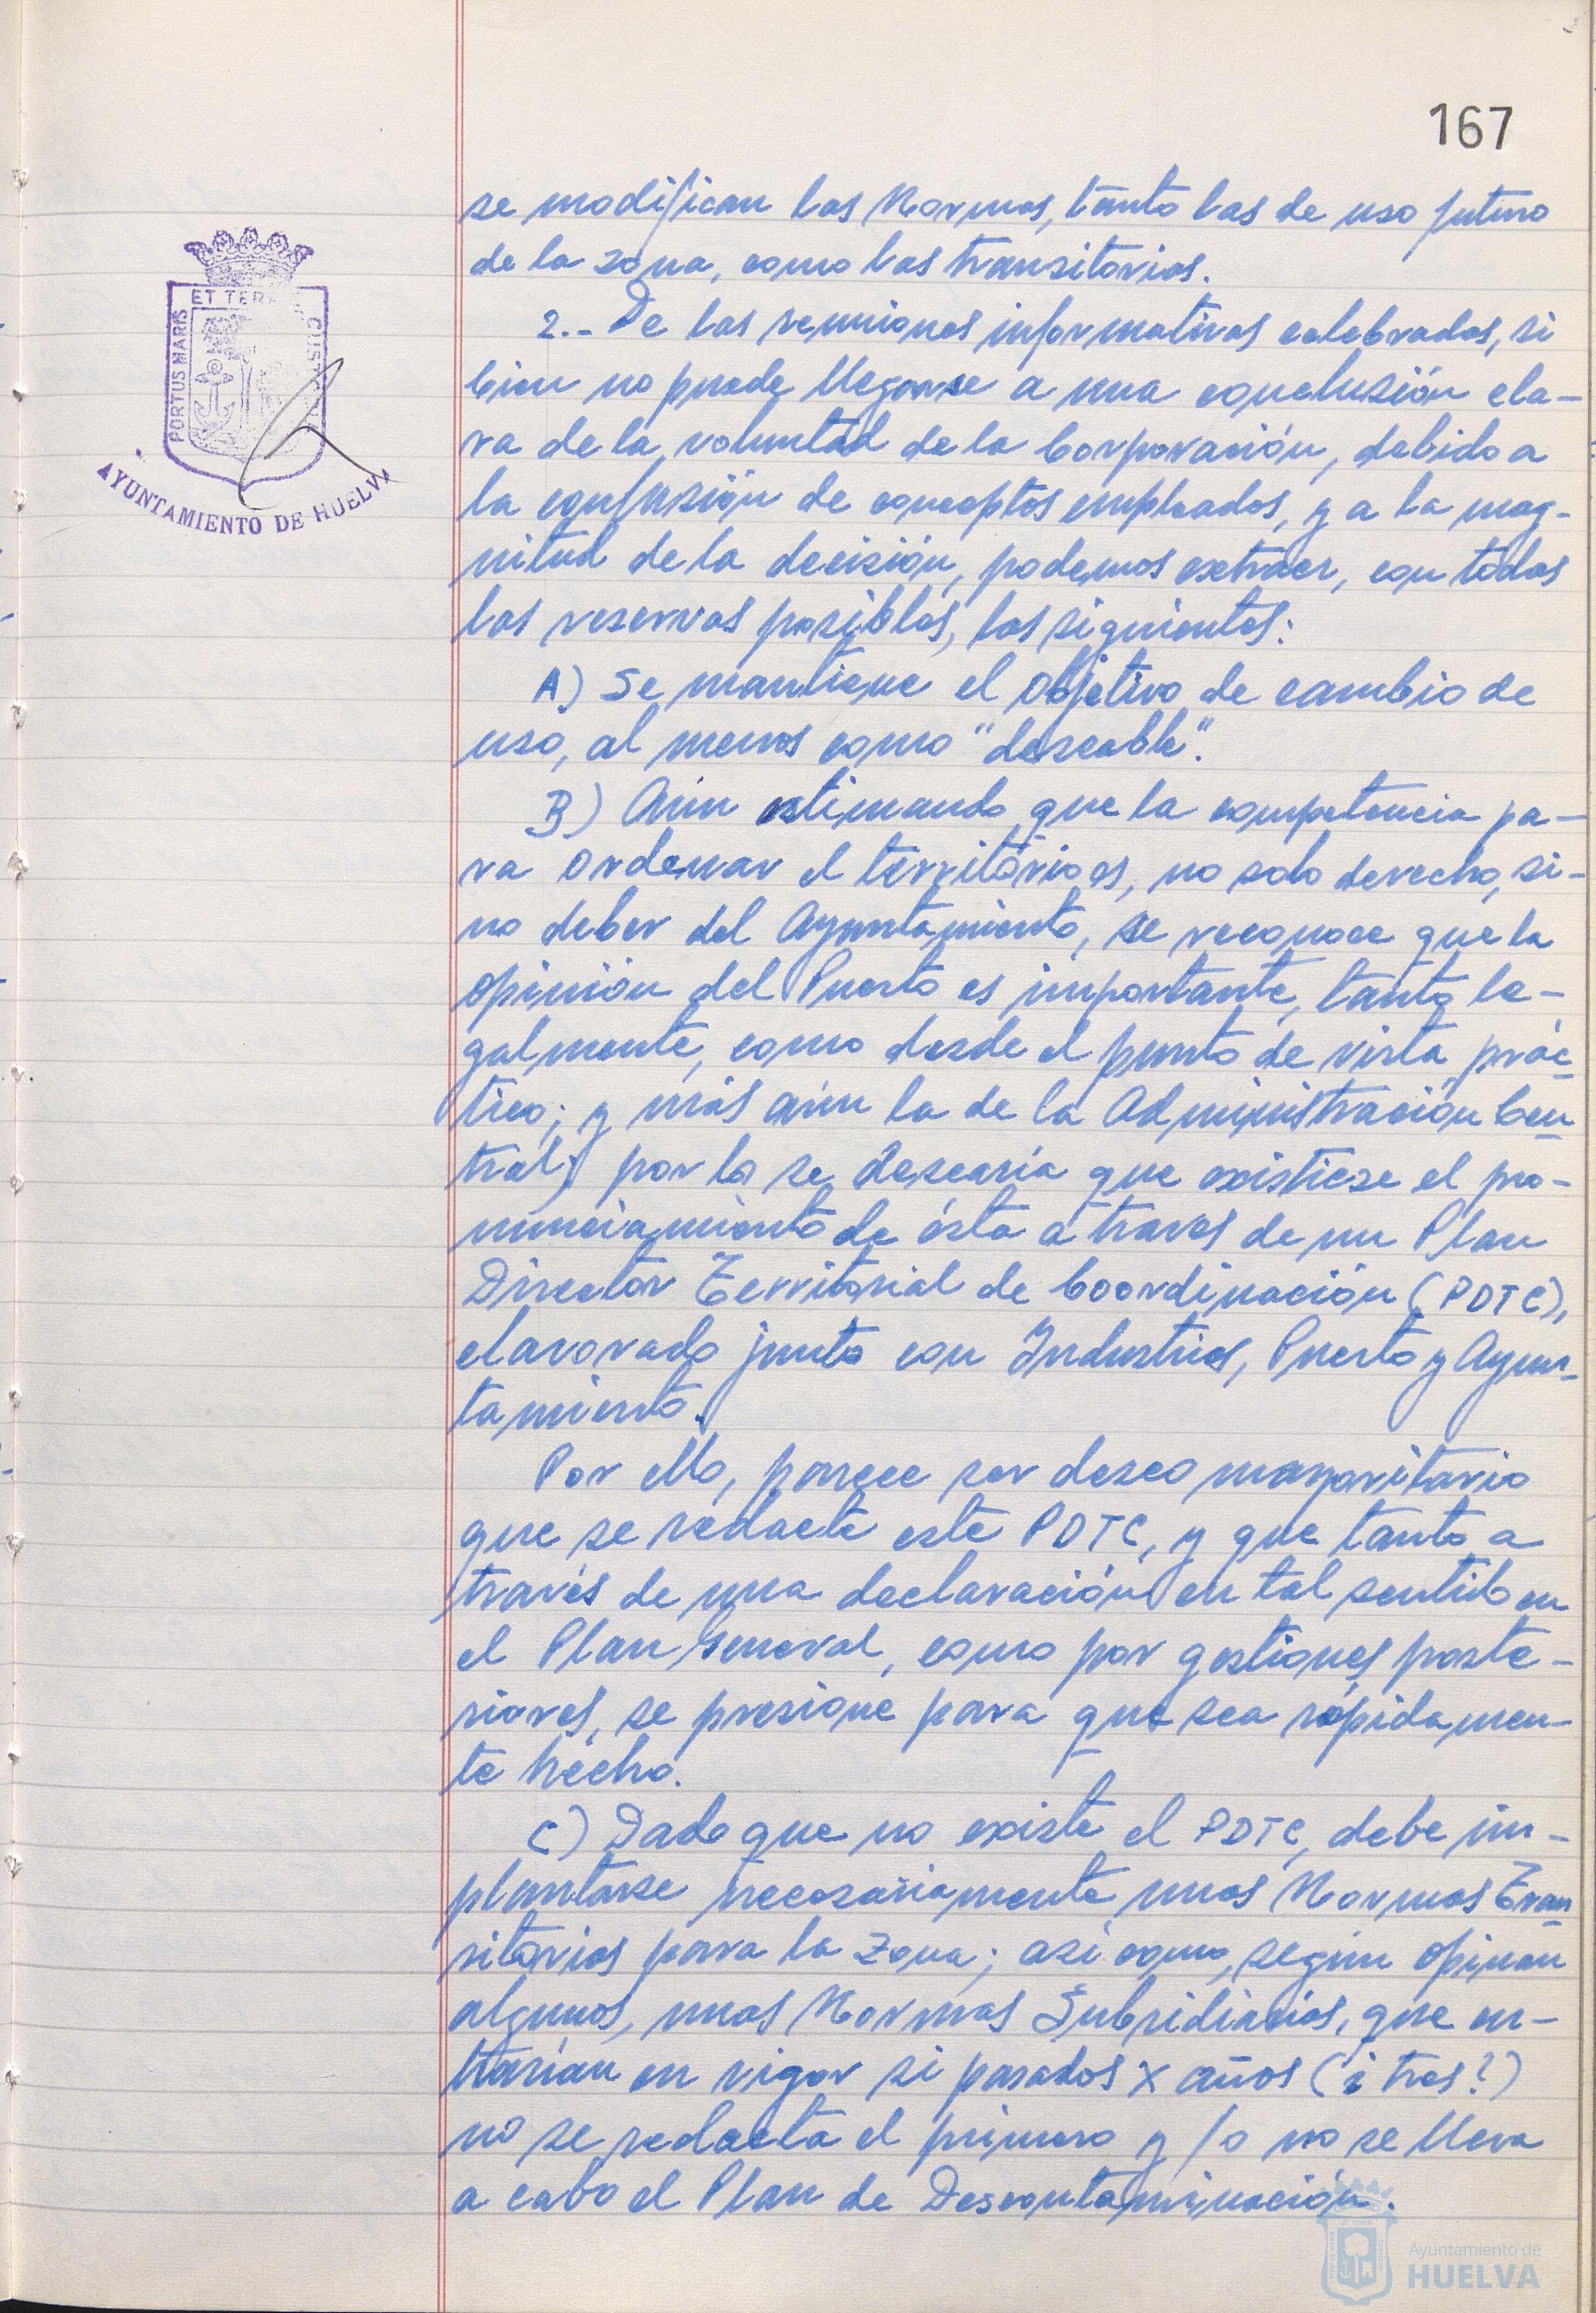 167
se modifican las Normas, tanto las de uso futuro
de la zona, como las transitorias.
2.- De las reuniones informativas celebradas, si
bien no puede llegarse a una conclusión cla-
ra de la voluntad de la Corporación, debido a
la confusión de conceptos empleados, y a la mag-
nitud de la decisión, podemos extraer, con todas
las reservas posibles, las siguientes:
A) Se mantiene el objetivo de cambio de
uso, al menos como "deseable".
B) Aún estimando que la competencia pa-
ra ordenar el territorio es, no solo derecho, si-
no deber del Ayuntamiento, se reconoce que la
opinión del Puerto es importante, tanto le-
galmente, como desde el punto de vista prác-
tico; y más aún la de la Administración Cen-
tral; por lo se desearía que existiese el pro-
nunciamiento de ésta a través de un Plan
Director Territorial de Coordinación (PDTC),
elavorado junto con Industrias, Puerto y Ayun-
tamiento.
Por ello, parece ser deseo mayoritario
que se redacte este PDTC, y que tanto a
través de una declaración en tal sentido en
el Plan General, como por gestiones poste-
riores, se presione para que sea rápidamen-
te hecho.
C) Dado que no existe el PDTC, debe im-
plantarse necesariamente unas Normas Tran-
sitorias para la zona; así como, según opinan
algunos, unas Normas Subsidiarias, que en-
trarían en vigor si pasados X años (¿ tres?)
no se redacta el primero y/o no se lleva
a cabo el Plan de Descontaminación.
PORTUS MARIS
ET TERRE
CUSTODIA
AYUNTAMIENTO DE HUELVA
Ayuntamiento de
HUELVA